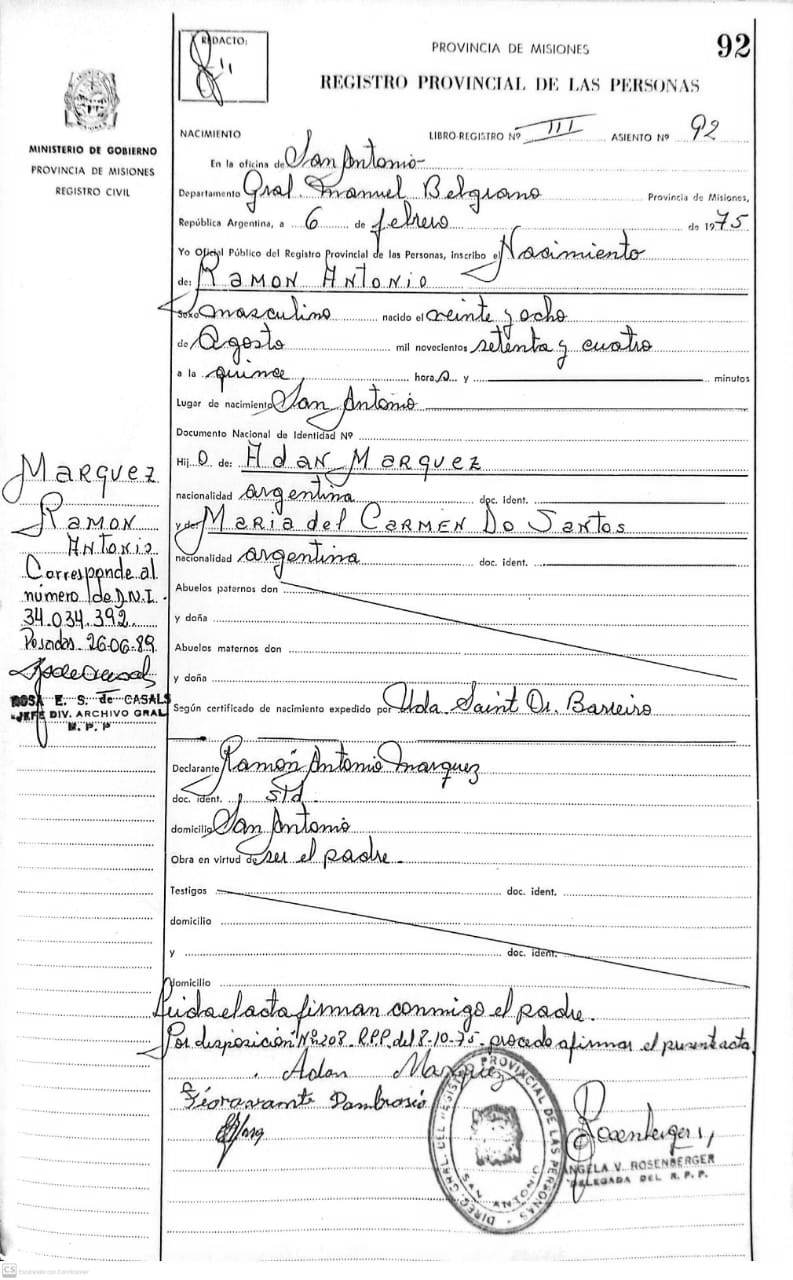 REDACTO:
PROVINCIA DE MISIONES
92
REGISTRO PROVINCIAL DE LAS PERSONAS
MINISTERIO DE GOBIERNO
PROVINCIA DE MISIONES
REGISTRO CIVIL
NACIMIENTO LIBRO-REGISTRO Nº III ASIENTO Nº 92
En la oficina de San Antonio-
Departamento Gral. Manuel Belgrano Provincia de Misiones,
República Argentina, a 6 de febrero de 1975
Yo Oficial Público del Registro Provincial de las Personas, inscribo el Nacimiento
de: RAMON ANTONIO
Sexo masculino nacido el veinte y ocho
de Agosto mil novecientos setenta y cuatro
a la quince hora s y minutos
Lugar de nacimiento San Antonio
Documento Nacional de Identidad Nº
Hij o de: ADAN MARQUEZ
nacionalidad argentina doc. ident.
y de: MARIA del CARMEN DO SANTOS
nacionalidad argentina doc. ident.
Abuelos paternos don
y doña
Abuelos maternos don
y doña
Según certificado de nacimiento expedido por Uda. Saint Dr. Barreiro
Declarante Ramón Antonio Marquez
doc. ident. s/d.
domicilio San Antonio
Obra en virtud de ser el padre.
Testigos doc. ident.
domicilio
y doc. ident.
domicilio
Leida el acta firman conmigo el padre.
Por disposición Nº 208 R.P.P. del 8-10-75 procedo a firmar el presente acta
Adan Marquez
Fioravante Dambrosio
DIREC. GRAL. DEL REGISTRO PROVINCIAL DE LAS PERSONAS
SAN ANTONIO
Rosenberger
ANGELA V. ROSENBERGER
DELEGADA DEL R. P. P.
MARQUEZ
RAMON
ANTONIO
Corresponde al
número de D.N.I.
34.034.392
Posadas 26-06-89
ROSA E. S. de CASALS
JEFE DIV. ARCHIVO GRAL.
R. P. P
CS Escaneado con CamScanner